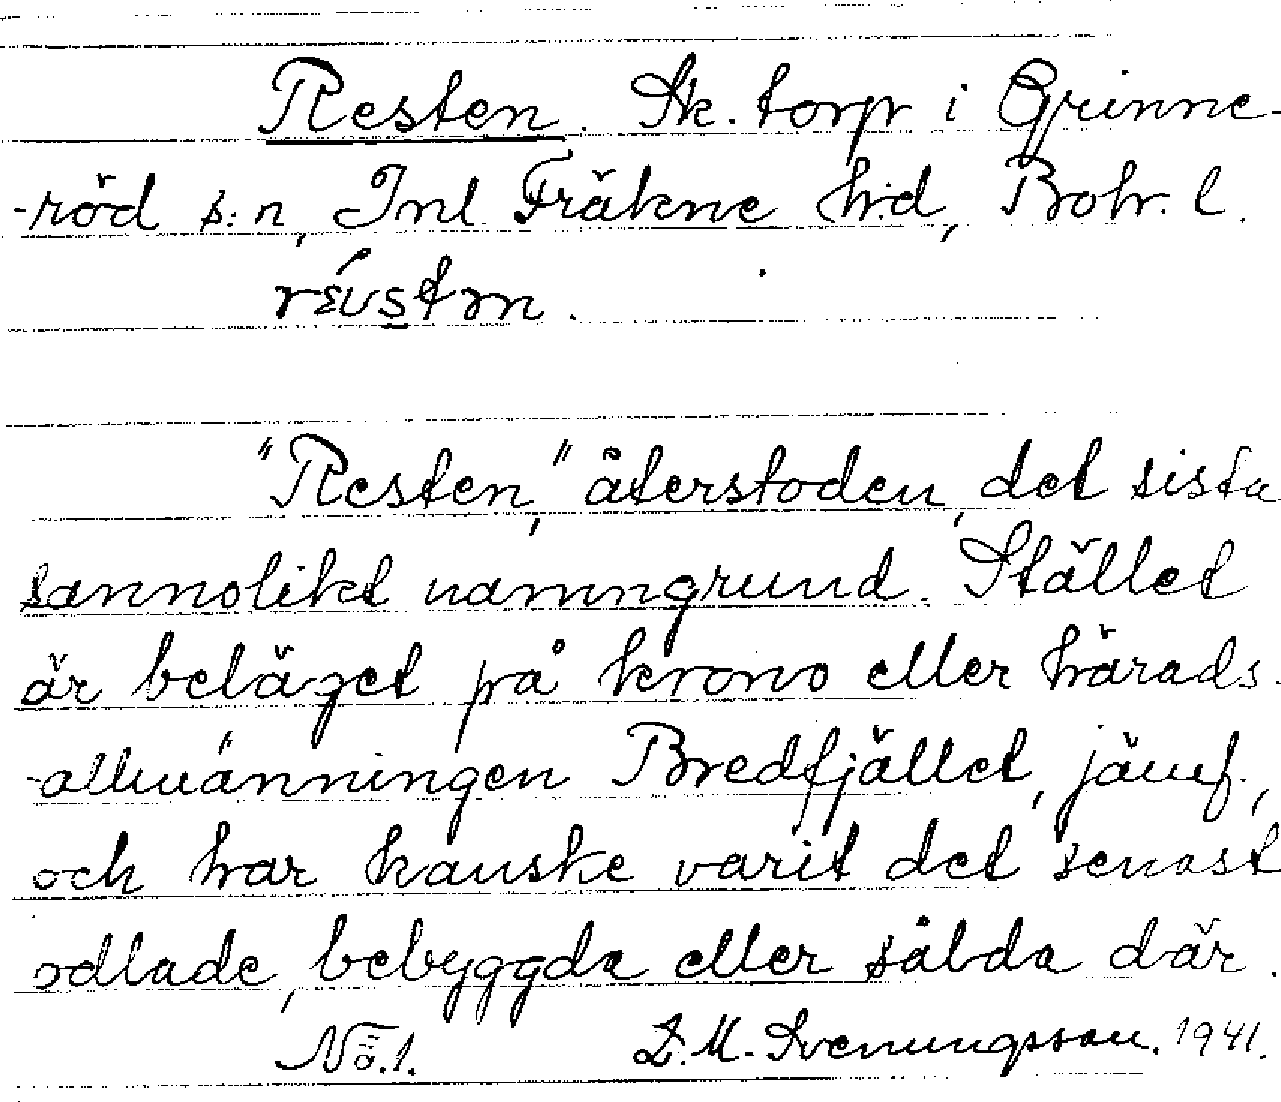 Resten. Sk. torp i Grinne-
-röd s:n, Inl. Fräkne h:d, Boh. l.
"Resten," återstoden, det sista
sannolikt namngrund. Stället
är beläget på krono eller härads-
-allmänningen Bredfjället, jämf.,
och har kanske varit det senast
odlade, bebyggda eller sålda där.
No. 1. L. M. Svenungsson. 1941.